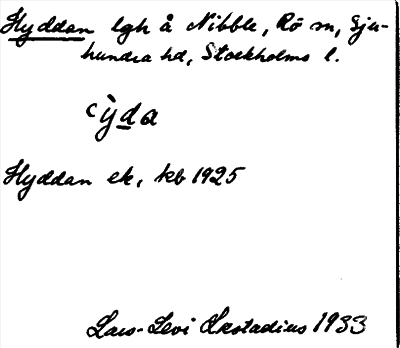 Hyddan lgh å Nibble, Rö sn, Sju-
hundra hd, Stockholms l.
cỳda
Hyddan ek, kb 1925
Lars-Levi Læstadius 1933